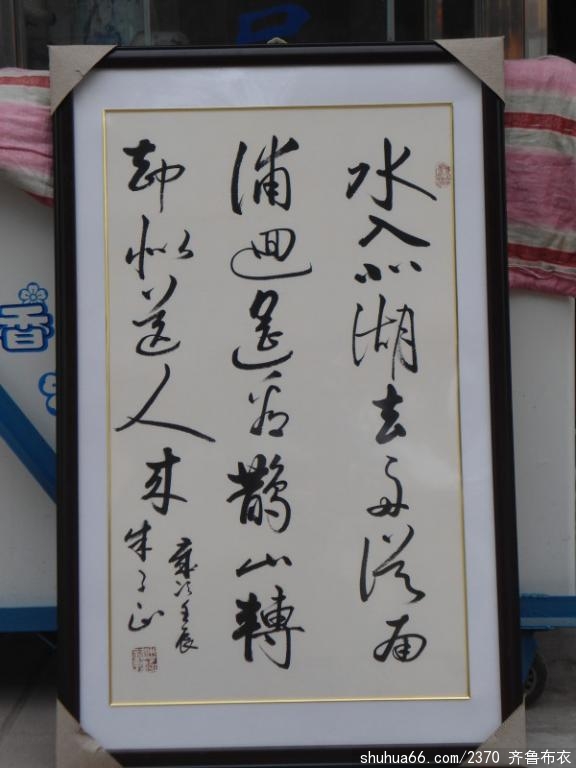 水入北湖去舟從南
浦迴遙看鵲山轉
却似送人來
歲次壬辰
香
shuhua66.com/2370 齐鲁布衣